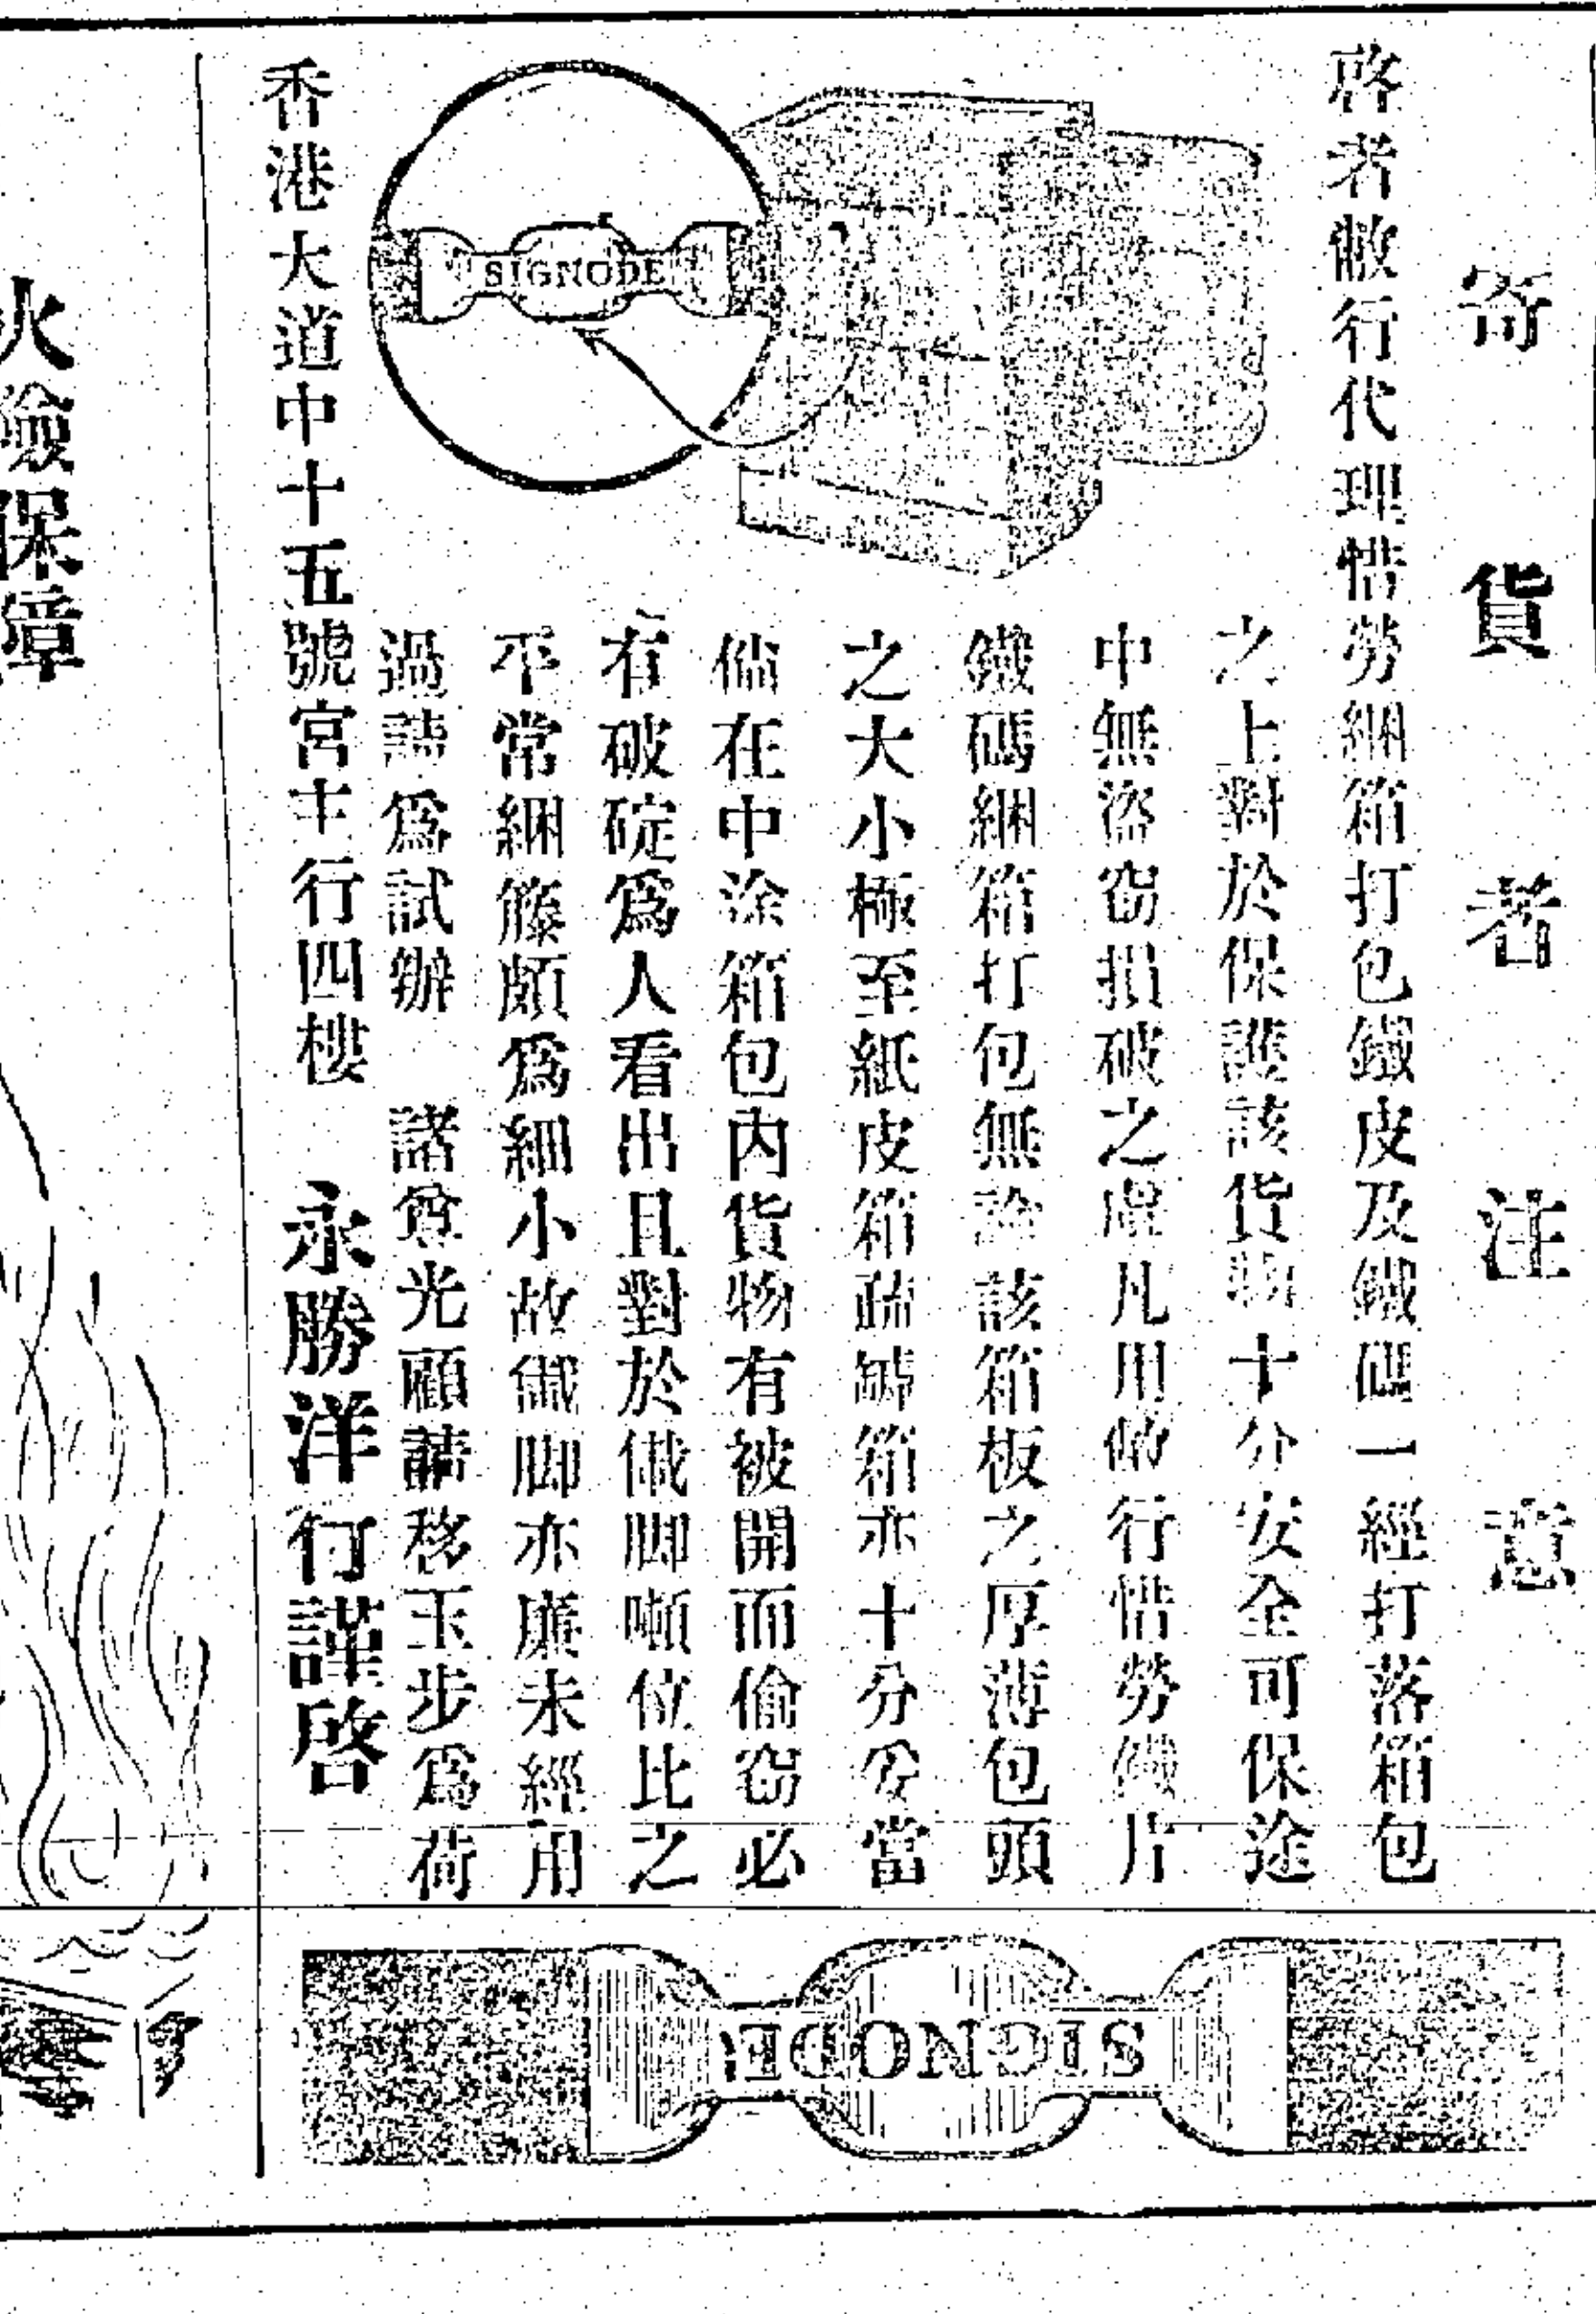 寄貨者注意
啓者敝行代理惜勞綑箱打包鐵皮及鐵碼一經打落箱包
之上對於保護該貨物十分安全可保途
中無盜窃損破之虞凡用敝行惜勞鐵片
鐵碼綑箱打包無論該箱板之厚薄包頭
之大小極至紙皮箱疏罅箱亦十分妥當
倘在中途箱包內貨物有被開而偷窃必
有破碇爲人看出且對於儎脚噸位比之
平常綑籐頗爲細小故儎脚亦廉未經用
過請爲試辦　諸君光顧請移玉步爲荷
香港大道中十五號宮主行四樓　永勝洋行謹啓
SIGNODE
SIGNODE
火險保障